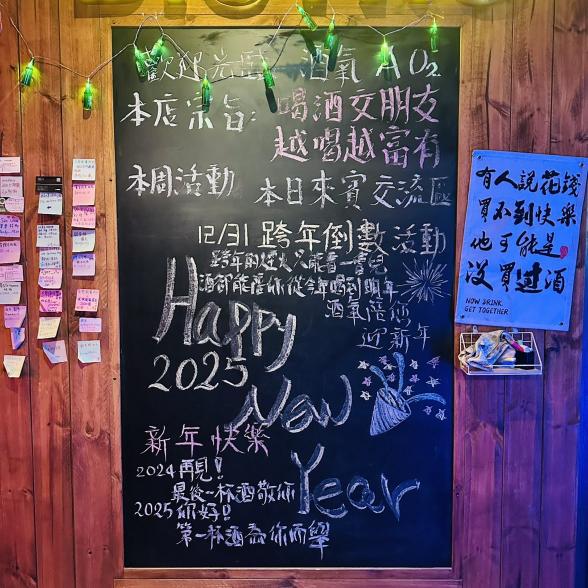 歡迎光臨 酒氧 AO₂
本店宗旨: 喝酒交朋友
越喝越富有
本周活動 本日來賓交流區
12/31 跨年倒數活動
跨年的煙火只能看一會兒
酒卻能陪你從今年喝到明年
酒氧陪您
迎新年
Happy
2025
New
Year
新年快樂
2024再見!
最後一杯酒敬你
2025你好!
第一杯酒為你而舉
有人說花錢
買不到快樂
他可能是
沒買過酒
NOW DRINK.
GET TOGETHER